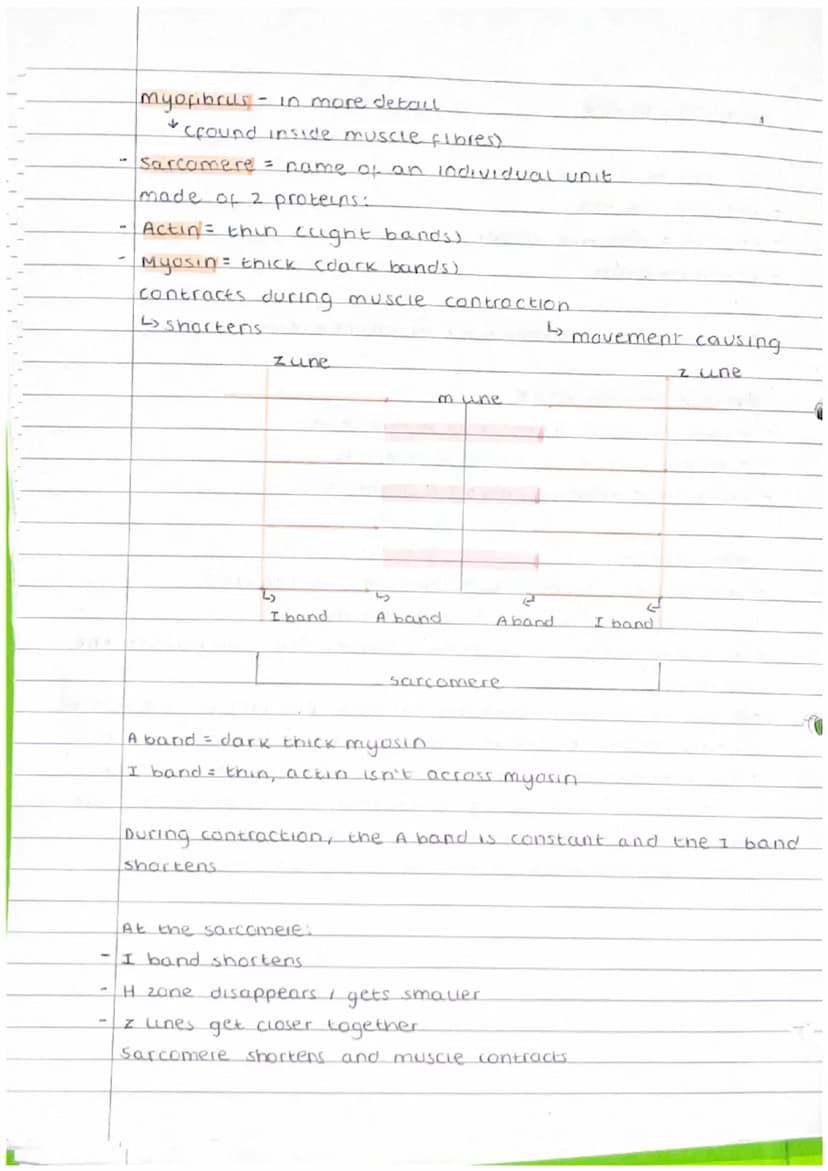 myofibrils - in more detail
↓ (found inside muscle fibres)
- Sarcomere = name of an individual unit
made of 2 proteins:
- Actin = thin (light bands)
- Myosin = thick (dark bands)
contracts during muscle contraction
↳ shortens ↳ movement causing
z line z line
m line
I band A band A band I band
sarcomere
A band = dark thick myosin
I band = thin, actin isn't across myosin
During contraction, the A band is constant and the I band
shortens
At the sarcomere:
- I band shortens
- H zone disappears / gets smaller
- z lines get closer together
Sarcomere shortens and muscle contracts